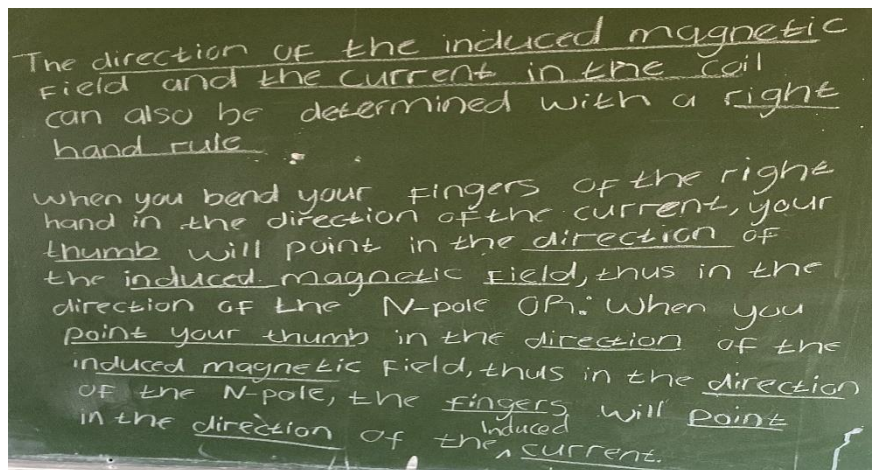 The direction of the induced magnetic
Field and the current in the coil
can also be determined with a right
hand rule
when you bend your Fingers OF the right
hand in the direction of the current, your
thumb will point in the direction of
the induced magnetic Field, thus in the
direction OF the N-pole OR: When you
point your thumb in the direction of the
induced magnetic Field, thus in the direction
OF the N-pole, the fingers will point
in the direction of the ^ Induced current.